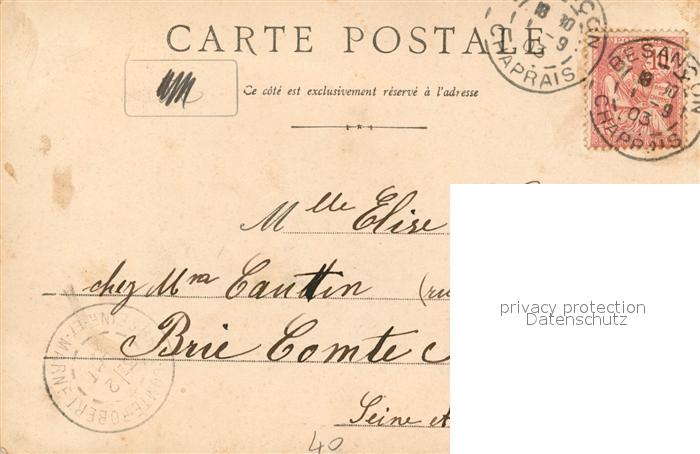 CARTE POSTALE
Ce côté est exclusivement réservé à l'adresse
BESANÇON
18 30
1 - 9
03
CHAPRAIS
10
Mlle Elise
chez Mra Cauttin (ru
Brie Comte
Seine et
privacy protection
Datenschutz
40